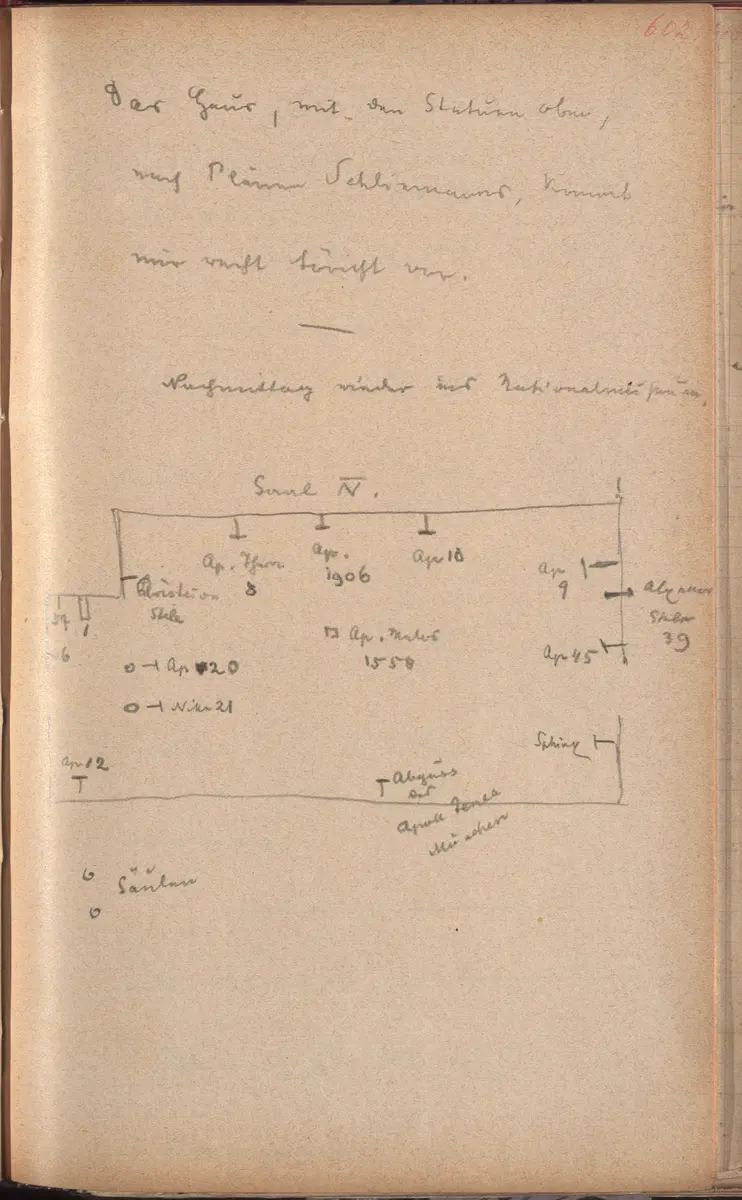 602
Das Haus, mit den Statuen oben,
nach Plänen Schliemanns, kommt
mir recht töricht vor.
Nachmittag wieder ins Nationalmuseum.
Saal IV.
Ap. Thera
8
Ap.
1906
Ap 10
Ap
9
Alxenor
Stele
39
Aristion
Stele
1
6
Ap 20
Ap. Melos
1558
Ap 45
Nike 21
Sphinx
Ap 12
Abguss
des
Apoll Tenea
München
Säulen